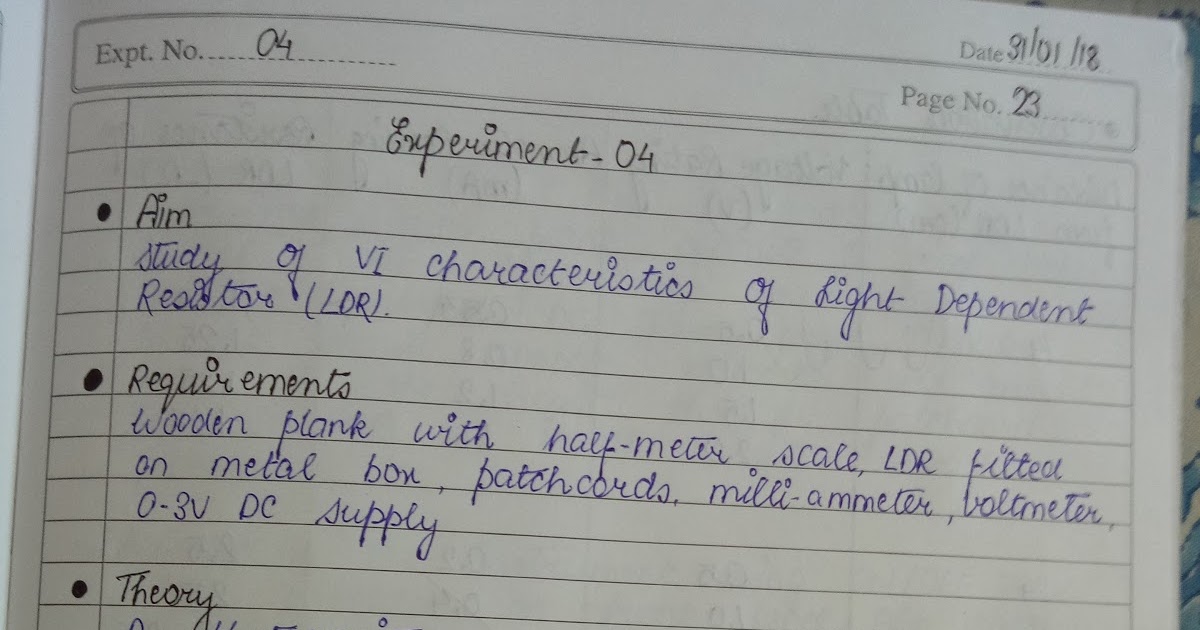 Expt. No. 04
Date 31/01/18
Page No. 23
Experiment-04
• Aim
Study of VI characteristics of Light Dependent
Resistor (LDR).
• Requirements
Wooden plank with half-meter scale, LDR fitted
on metal box, patchcords, milli-ammeter, voltmeter,
0-3V DC supply
• Theory